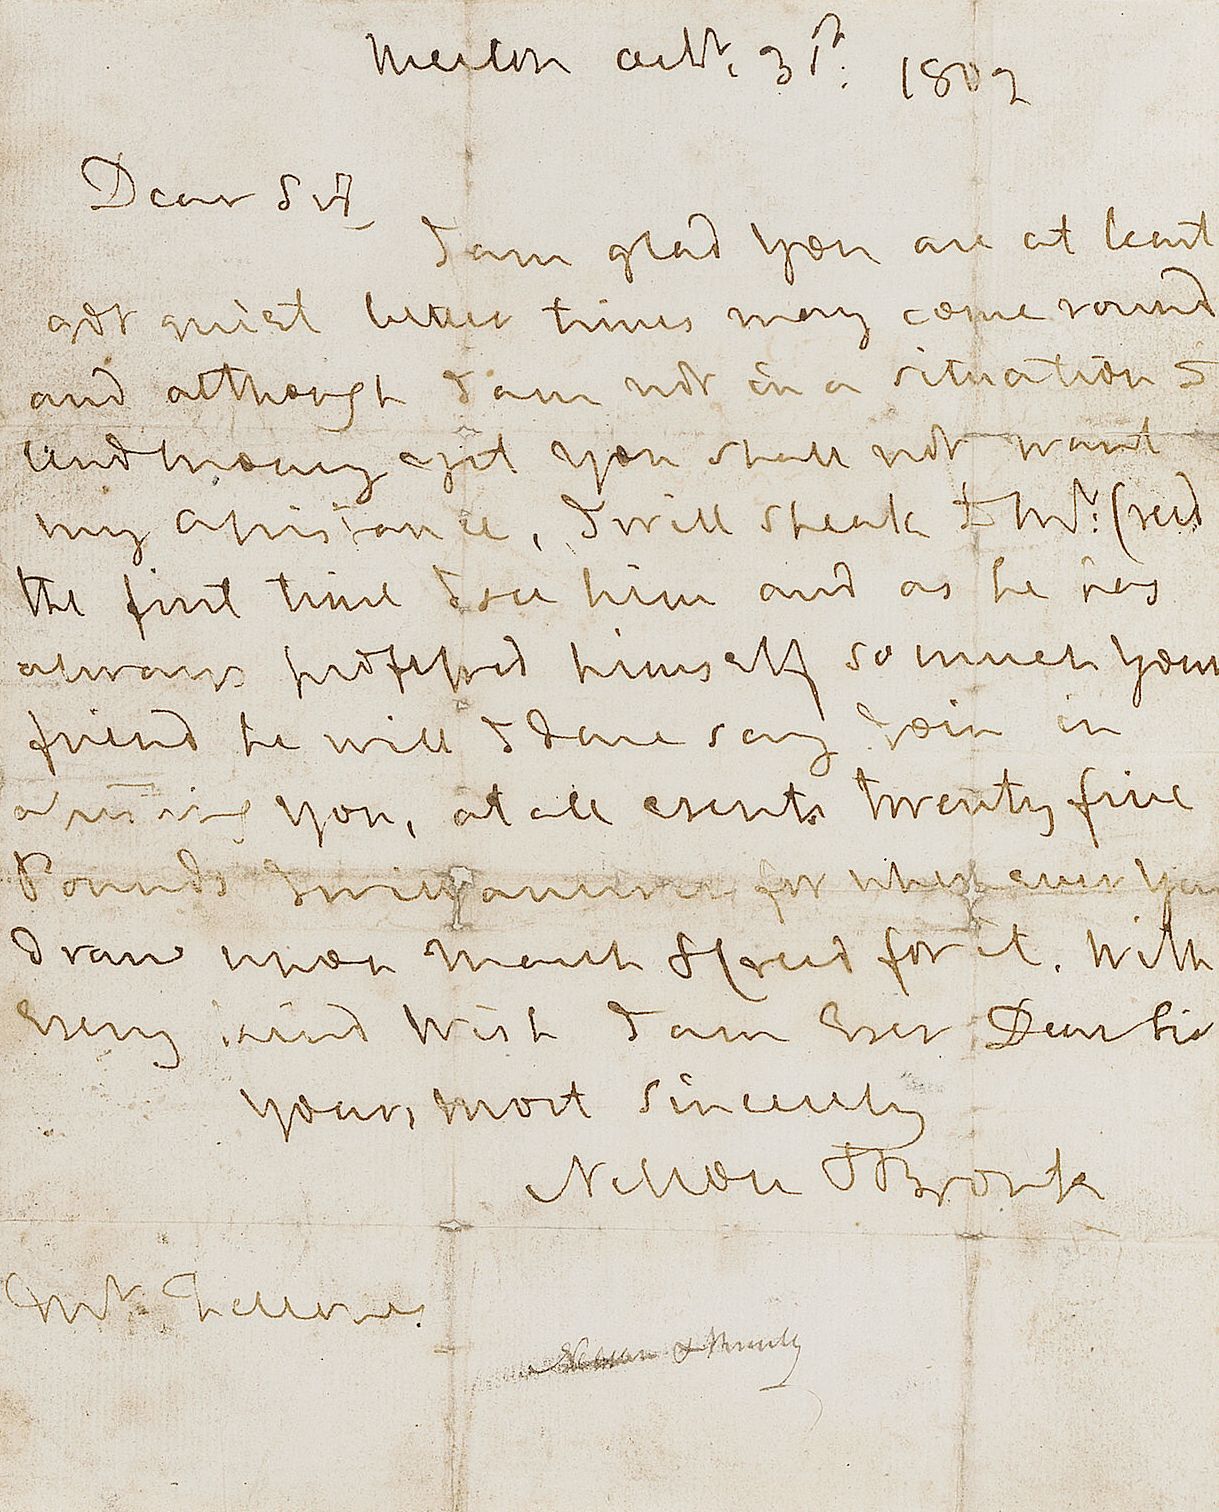 Merton Octr. 31st: 1802
Dear Sir
I am glad you are at least
got quiet better times may come round
and although I am not in a situation to
lend money yet you shall not want
my assistance, I will speak to Mr: Creed
the first time I see him and as he has
always professed himself so much your
friend he will I dare say Join in
assisting you, at all events twenty five
Pounds I will answer for whenever you
draw upon Marsh & Creed for it. With
Every kind Wish I am Ever Dear Sir
yours most sincerely
Nelson & Bronte
Mr. Fellows.
Nelson & Bronte